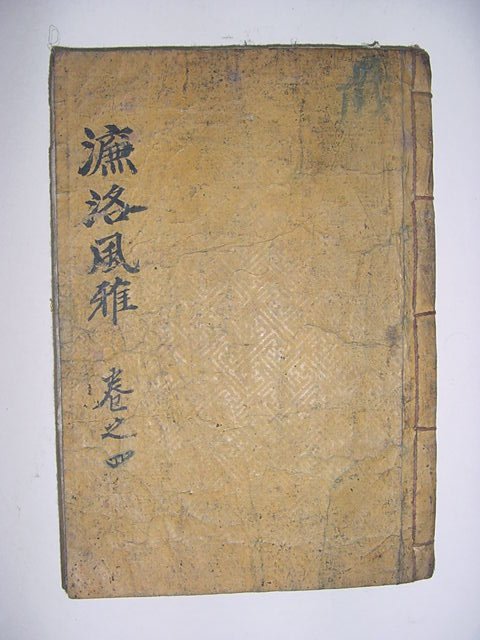 濂洛風雅 卷之四